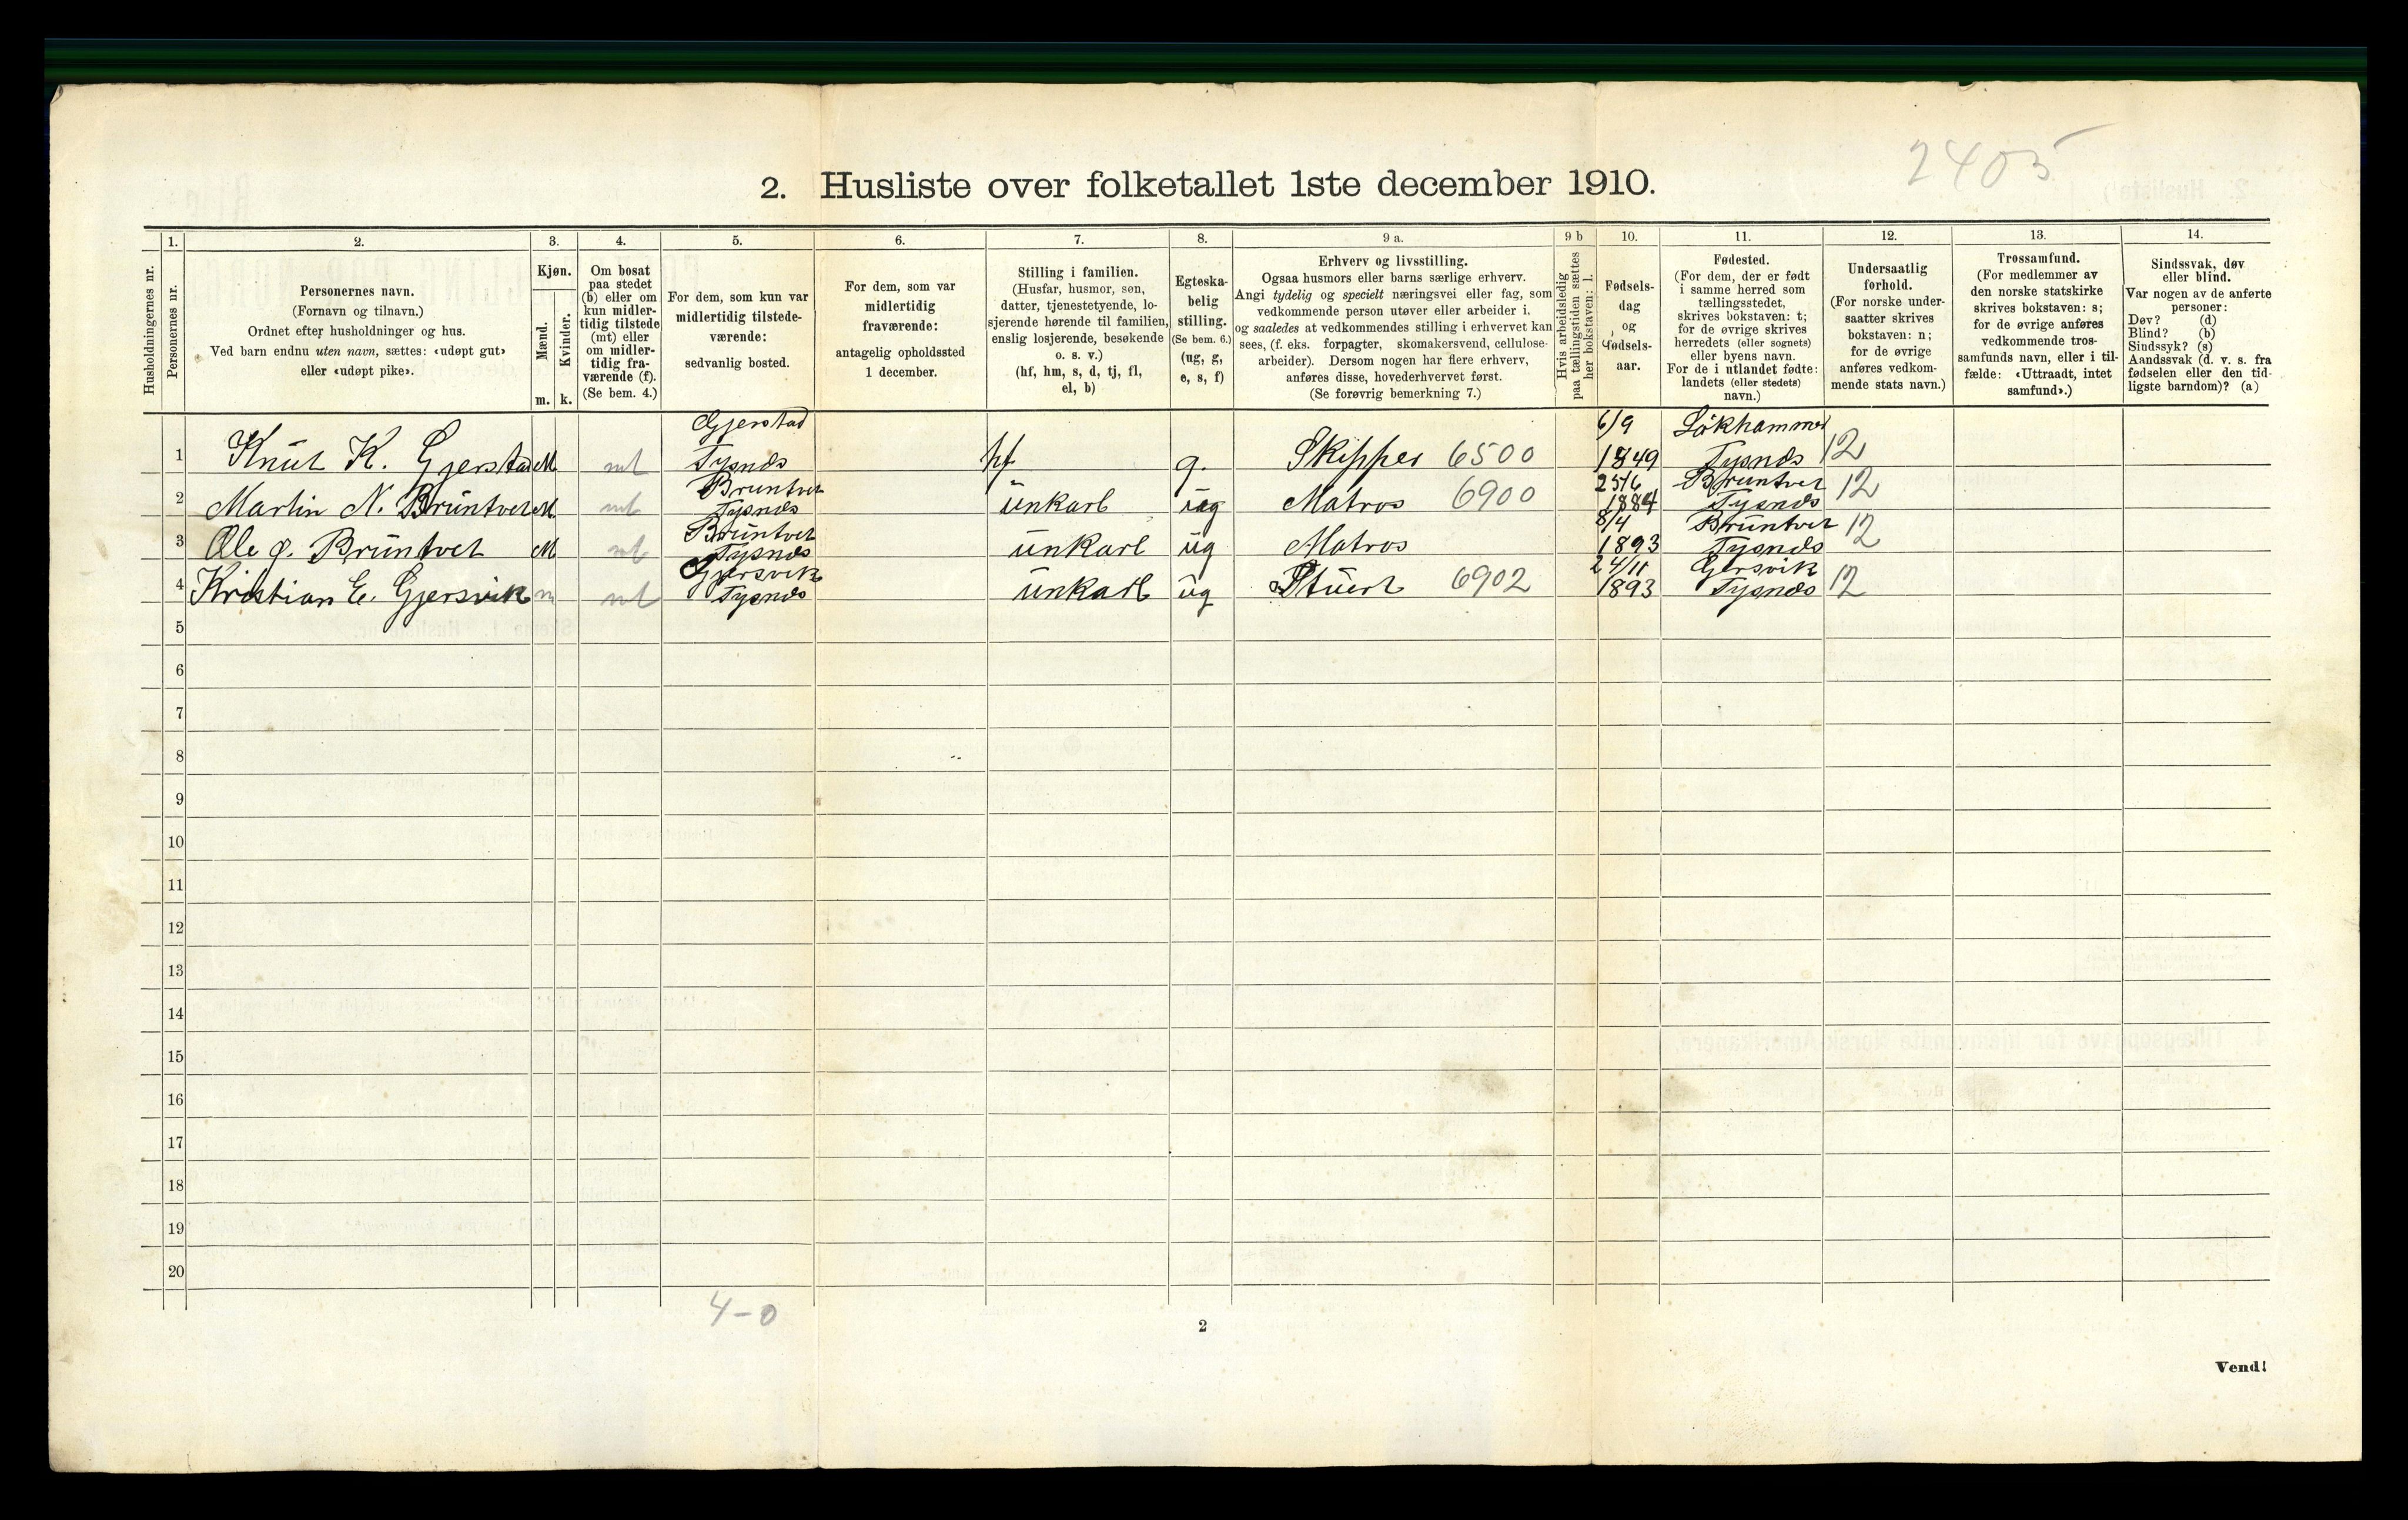 2405
2. Husliste over folketallet 1ste december 1910.
Husholdningernes nr.
1.
Personernes nr.
2.
Personernes navn.
(Fornavn og tilnavn.)
Ordnet efter husholdninger og hus.
Ved barn endnu uten navn, sættes: «udøpt gut»
eller «udøpt pike».
3.
Kjøn.
Mænd.
Kvinder.
m. k.
4.
Om bosat
paa stedet
(b) eller om
kun midler-
tidig tilstede
(mt) eller
om midler-
tidig fra-
værende (f).
(Se bem. 4.)
5.
For dem, som kun var
midlertidig tilstede-
værende:
sedvanlig bosted.
6.
For dem, som var
midlertidig
fraværende:
antagelig opholdssted
1 december.
7.
Stilling i familien.
(Husfar, husmor, søn,
datter, tjenestetyende, lo-
sjerende hørende til familien,
enslig losjerende, besøkende
o. s. v.)
(hf, hm, s, d, tj, fl,
el, b)
8.
Egteska-
belig
stilling.
(Se bem. 6.)
(ug, g,
e, s, f)
9 a.
Erhverv og livsstilling.
Ogsaa husmors eller barns særlige erhverv.
Angi tydelig og specielt næringsvei eller fag, som
vedkommende person utøver eller arbeider i,
og saaledes at vedkommendes stilling i erhvervet kan
sees, (f. eks. forpagter, skomakersvend, cellulose-
arbeider). Dersom nogen har flere erhverv,
anføres disse, hovederhvervet først.
(Se forøvrig bemerkning 7.)
9 b
Hvis arbeidsledig
paa tællingstiden sættes
her bokstaven: l.
10.
Fødsels-
dag
og
fødsels-
aar.
11.
Fødested.
(For dem, der er født
i samme herred som
tællingsstedet,
skrives bokstaven: t;
for de øvrige skrives
herredets (eller sognets)
eller byens navn.
For de i utlandet fødte:
landets (eller stedets)
navn.)
12.
Undersaatlig
forhold.
(For norske under-
saatter skrives
bokstaven: n;
for de øvrige
anføres vedkom-
mende stats navn.)
13.
Trossamfund.
(For medlemmer av
den norske statskirke
skrives bokstaven: s;
for de øvrige anføres
vedkommende tros-
samfunds navn, eller i til-
fælde: «Uttraadt, intet
samfund».)
14.
Sindssvak, døv
eller blind.
Var nogen av de anførte
personer:
Døv? (d)
Blind? (b)
Sindssyk? (s)
Aandssvak (d. v. s. fra
fødselen eller den tid-
ligste barndom)? (a)
Gjerstad 6/9 Lökhammer
1 Knut K. Gjerstad M mt Tysnds hf g. Skipper 6500 1849 Tysnds 12
Bruntvet 25/6 Bruntvet
2 Martin N. Bruntvet M. mt Tysnds unkarl ug Matros 6900 1884 Tysnds 12
Bruntvet 8/4 Bruntvet
3 Ole J. Bruntvet M mt Tysnds unkarl ug Matros 1893 Tysnds 12
Gjersvik 24/11 Gjersvik
4 Kristian E. Gjersvik m mt Tysnds unkarl ug Stuert 6902 1893 Tysnds 12
5
6
7
8
9
10
11
12
13
14
15
16
17
18
19
20
4-0
2
Vend!